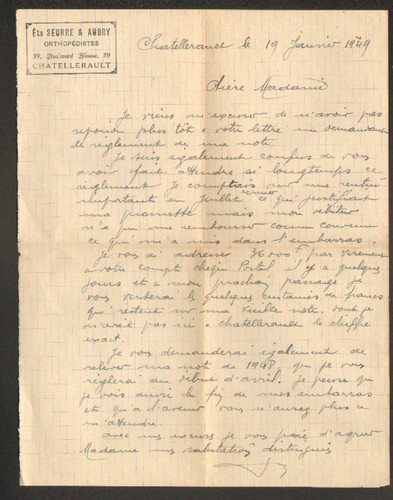 Éts SEURRE & AUDRY
ORTHOPÉDISTES
39, Boulevard Blossac, 39
CHATELLERAULT
Chatellerault le 19 Janvier 1949
Chère Madame
Je viens m'excuser de n'avoir pas
répondu plus tôt a votre lettre me demandant
le règlement de ma note
Je suis également confus de vous
avoir fait attendre si longtemps ce
règlement Je comptais sur une rentrée
important en Juillet dernier ce qui justifiait
ma promesse mais mon débiteur
n'a pu me rembourser comme convenu
ce qui m'a mis dans l'embarras.
Je vous ai adressé par virement
a votre compt chèque Postal il y a quelques
jours et a mon prochain passage je
vous verserai les quelques centaines de francs
qui restent sur ma vieille note. dont je
n'avait pas ici a chatellerault le chiffre
exact.
Je vous demanderai également de
relever ma note de 1948 que je vous
règlerai au début d'avril. Je pense que
je vois aussi la fin de mes embarras
et qu'a l'avenir vous n'aurez plus a
m'attendre.
avec mes excuses je vous prie d'agréer
Madame mes salutations distinguées